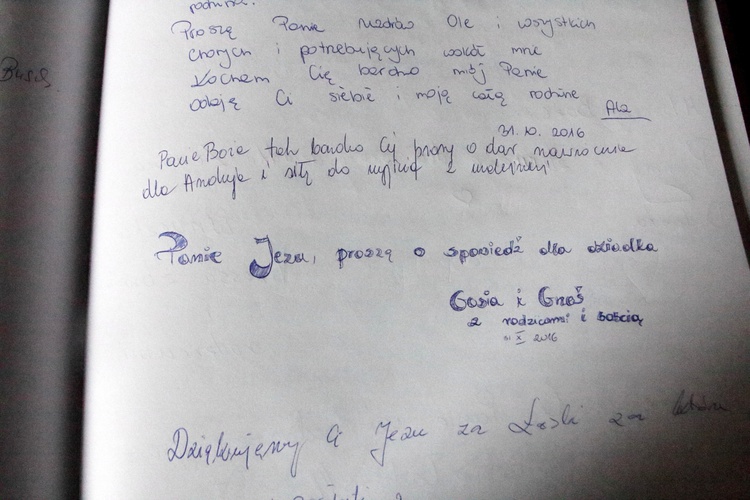 rodzinę.
Proszę Panie uzdrów Olę i wszystkich
chorych i potrzebujących wokół mnie
Kocham Cię bardzo mój Panie
oddaję Ci siebie i moją całą rodzinę
Ala
31. 10. 2016
Panie Boże tak bardzo Cię proszę o dar nawrócenia
dla Andrzeja i siłę do wyjścia z
Panie Jezu, proszę o spowiedź dla dziadka
Gosia i Grześ
z rodzicami i Gosią
X 2016
Dziękujemy Ci Jezu za Łaski za